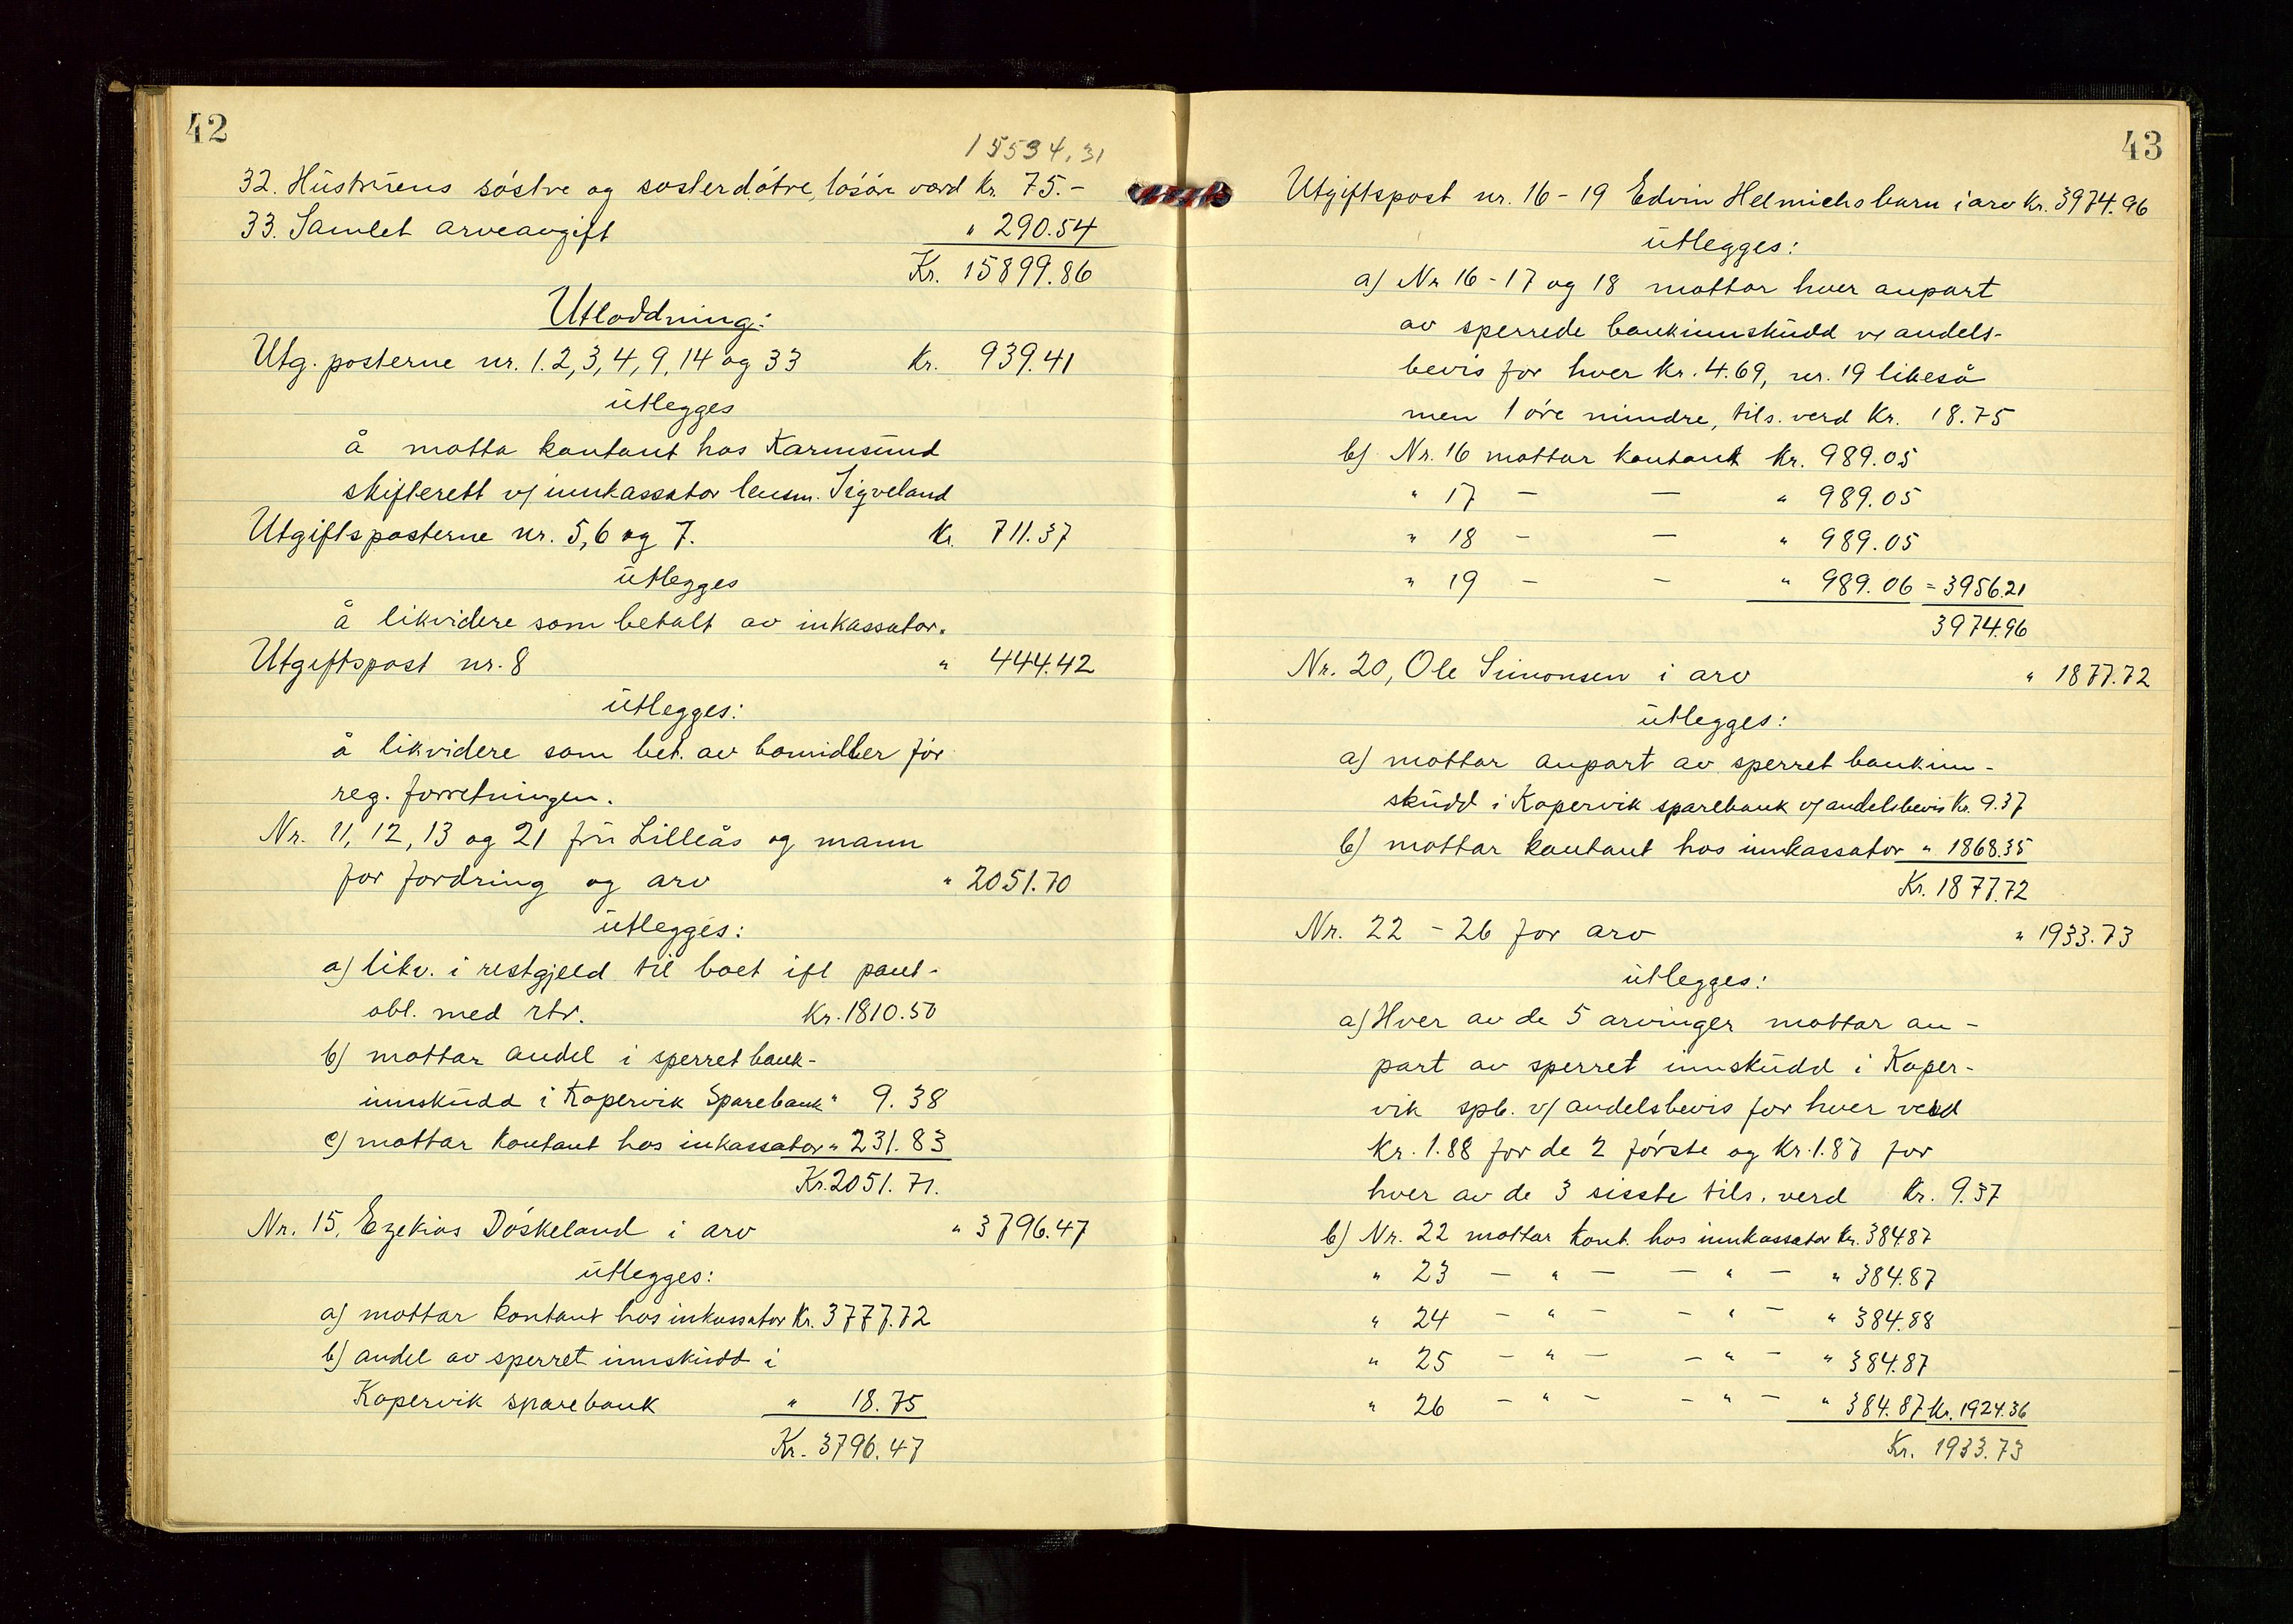 42
15534,31
32. Hüstrüens søstre og sosterdøtre, løsøre værd Kr. 75.-
33. Samlet arveavgift " 290.54
Kr. 15899.86
Utloddning:
Utg. posterne nr. 1.2,3,4,9,14 og 33 Kr. 939.41
ütlegges
å motta kontant hos Karmsünd
skifterett v/innkassator lensm. Sigveland
Utgiftsposterne nr. 5,6 og 7. Kr. 711.37
ütlegges
å likvidere som betalt av inkassator.
Utgiftspost nr. 8 " 444.42
ütlegges:
å likvidere som bet. av bomidler før
reg. forretningen.
Nr. 11, 12, 13 og 21 frü Lilleås og mann
for fordring og arv " 2051.70
ütlegges:
a) likv. i restgjeld til boet ifl pant-
obl. med rtr. Kr. 1810.50
b) mottar andel i sperret bank-
innsküdd i Kopervik Sparebank " 9.38
c) mottar kontant hos inkassator " 231.83
Kr. 2051.71.
Nr. 15, Ezekias Døskeland i arv " 3796.47
ütlegges:
a) mottar kontant hos inkassator Kr. 3777.72
b) andel av sperret innsküdd i
Kopervik sparebank " 18.75
Kr. 3796.47
43
Utgiftspost nr. 16 - 19 Edvin Helmichs barn i arv Kr. 3974.96
ütlegges:
a) Nr 16 - 17 og 18 mottar hver anpart
av sperrede bankinnsküdd v/ andels-
bevis for hver Kr. 4.69, nr. 19 likeså
men 1 øre mindre, tils. verd Kr. 18.75
b) Nr. 16 mottar kontant Kr. 989.05
" 17 - - " 989.05
" 18 - - " 989.05
" 19 - - " 989.06 = 3956.21
3974.96
Nr. 20, Ole Simonsen i arv " 1877.72
ütlegges:
a) mottar anpart av sperret bankinn-
sküdd i Kopervik sparebank v/ andelsbevis Kr. 9.37
b) mottar kontant hos innkassator " 1868.35
Kr. 1877.72
Nr. 22 - 26 for arv " 1933.73
ütlegges:
a) Hver av de 5 arvinger mottar an-
part av sperret innsküdd i Koper-
vik spb. v/ andelsbevis for hver verd
Kr. 1.88 for de 2 første og Kr. 1.87 for
hver av de 3 sisste tils. verd Kr. 9.37
b) Nr. 22 mottar kont. hos innkassator Kr. 384.87
" 23 - " - - " - " 384.87
" 24 - " - - " - " 384.88
" 25 - " - - " - " 384.87
" 26 - " - - " - " 384.87 Kr. 1924.36
Kr. 1933.73